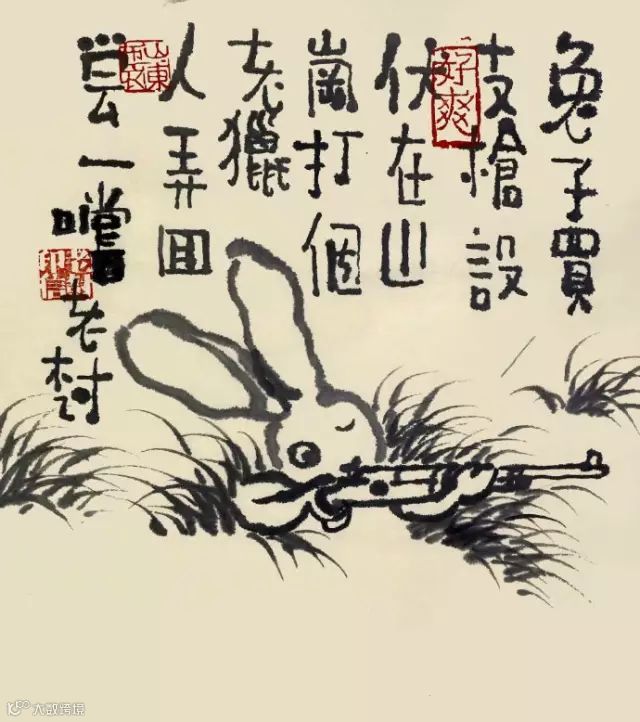 兔子買
支槍設
伏在山
崗打個
老獵
人弄回
尝一嚐
老村
好爽
大数跨境